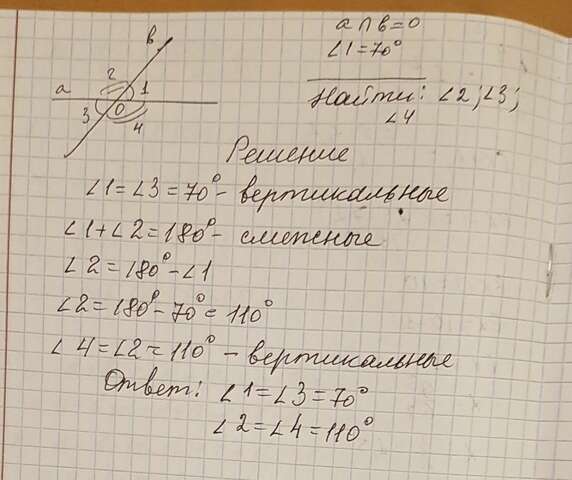 a ∩ b = 0
∠1 = 70°
Найти: ∠2; ∠3;
∠4
b
a
2
1
3
0
4
Решение
∠1 = ∠3 = 70° - вертикальные
∠1 + ∠2 = 180° - смежные
∠2 = 180° - ∠1
∠2 = 180° - 70° = 110°
∠4 = ∠2 = 110° - вертикальные
Ответ: ∠1 = ∠3 = 70°
∠2 = ∠4 = 110°